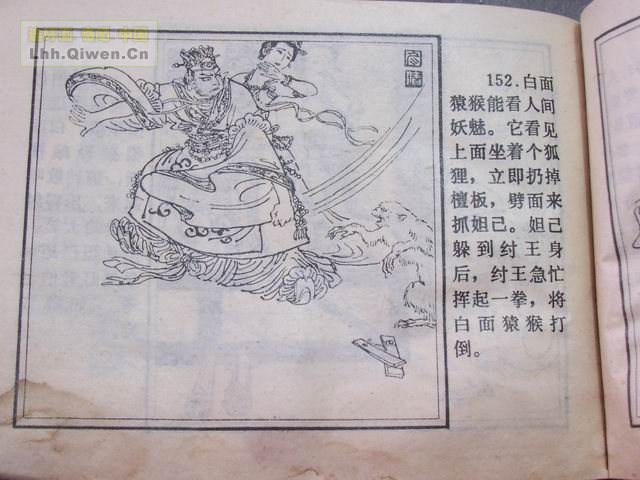 Lhh.Qiwen.Cn
152.白面
猿猴能看人间
妖魅。它看见
上面坐着个狐
狸，立即扔掉
檀板，劈面来
抓妲己。妲己
躲到纣王身
后，纣王急忙
挥起一拳，将
白面猿猴打
倒。